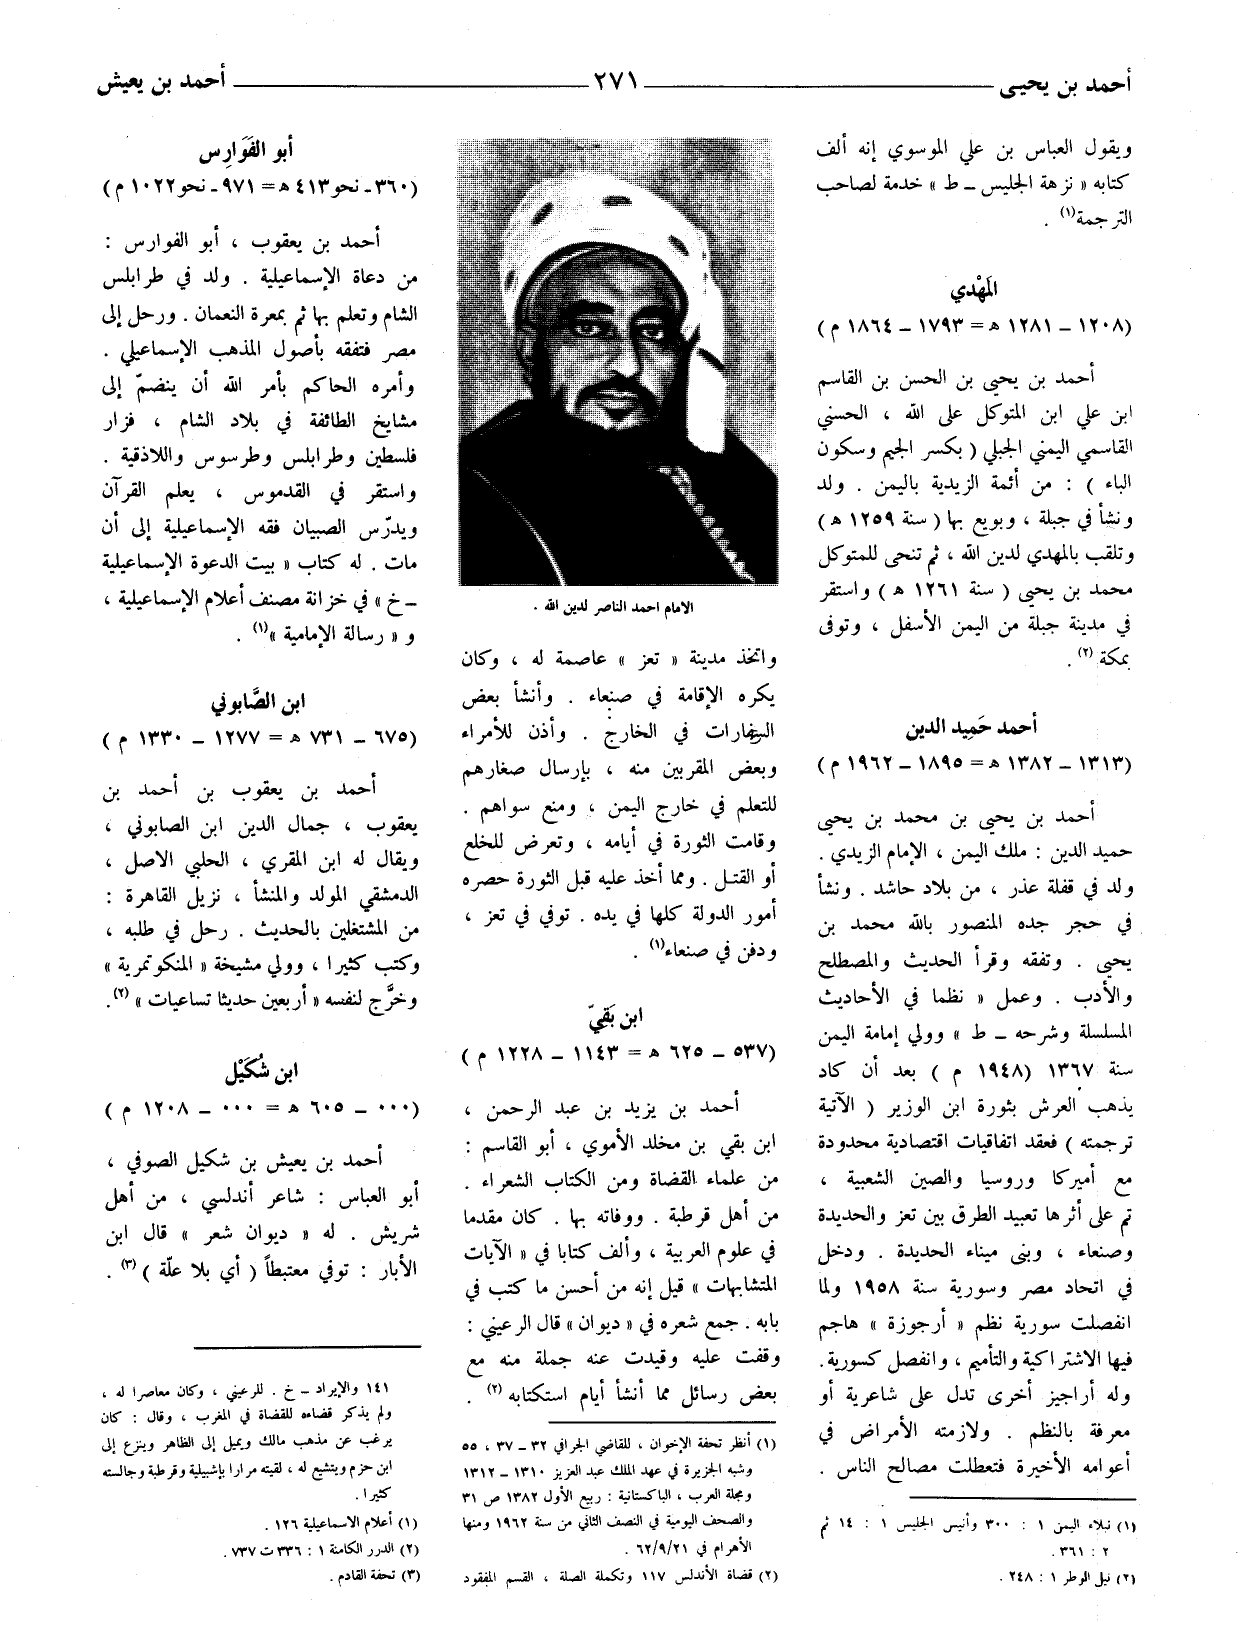 أحمد بن يحيى ـــــ ٢٧١ ـــــ أحمد بن يعيش
ويقول العباس بن علي الموسوي إنه ألف
كتابه « نزهة الجليس – ط » خدمة لصاحب
الترجمة(١) .
المَهْدي
(١٢٠٨ – ١٢٨١ ه = ١٧٩٣ – ١٨٦٤ م)
أحمد بن يحيى بن الحسن بن القاسم
ابن علي ابن المتوكل على الله ، الحسني
القاسمي اليمني الجبلي ( بكسر الجيم وسكون
الباء ) : من أئمة الزيدية باليمن . ولد
ونشأ في جبلة ، وبويع بها ( سنة ١٢٥٩ ه )
وتلقب بالمهدي لدين الله ، ثم تنحى للمتوكل
محمد بن يحيى ( سنة ١٢٦١ ه ) واستقر
في مدينة جبلة من اليمن الأسفل ، وتوفى
بمكة (٢) .
أحمد حَمِيد الدين
(١٣١٣ – ١٣٨٢ ه = ١٨٩٥ – ١٩٦٢ م)
أحمد بن يحيى بن محمد بن يحيى
حميد الدين : ملك اليمن ، الإمام الزيدي .
ولد في قفلة عذر ، من بلاد حاشد . ونشأ
في حجر جده المنصور بالله محمد بن
يحيى . وتفقه وقرأ الحديث والمصطلح
والأدب . وعمل « نظما في الأحاديث
المسلسلة وشرحه – ط » وولي إمامة اليمن
سنة ١٣٦٧ (١٩٤٨ م ) بعد أن كاد
يذهب العرش بثورة ابن الوزير ( الآتية
ترجمته ) فعقد اتفاقيات اقتصادية محدودة
مع أميركا وروسيا والصين الشعبية ،
تم على أثرها تعبيد الطرق بين تعز والحديدة
وصنعاء ، وبنى ميناء الحديدة . ودخل
في اتحاد مصر وسورية سنة ١٩٥٨ ولما
انفصلت سورية نظم « أرجوزة » هاجم
فيها الاشتراكية والتأميم ، وانفصل كسورية.
وله أراجيز أخرى تدل على شاعرية أو
معرفة بالنظم . ولازمته الأمراض في
أعوامه الأخيرة فتعطلت مصالح الناس .
(١) نبلاء اليمن ١ : ٣٠٠ وأنيس الجليس ١ : ١٤ ثم
٢ : ٣٦١ .
(٢) نيل الوطر ١ : ٢٤٨ .
الامام احمد الناصر لدين الله .
واتخذ مدينة « تعز » عاصمة له ، وكان
يكره الإقامة في صنعاء . وأنشأ بعض
السفارات في الخارج . وأذن للأمراء
وبعض المقربين منه ، بإرسال صغارهم
للتعلم في خارج اليمن ، ومنع سواهم .
وقامت الثورة في أيامه ، وتعرض للخلع
أو القتل . ومما أخذ عليه قبل الثورة حصره
أمور الدولة كلها في يده . توفي في تعز ،
ودفن في صنعاء(١) .
ابن بَقِيّ
(٥٣٧ – ٦٢٥ ه = ١١٤٣ – ١٢٢٨ م )
أحمد بن يزيد بن عبد الرحمن ،
ابن بقي بن مخلد الأموي ، أبو القاسم :
من علماء القضاة ومن الكتاب الشعراء .
من أهل قرطبة . ووفاته بها . كان مقدما
في علوم العربية ، وألف كتابا في « الآيات
المتشابهات » قيل إنه من أحسن ما كتب في
بابه . جمع شعره في « ديوان » قال الرعيني :
وقفت عليه وقيدت عنه جملة منه مع
بعض رسائل مما أنشأ أيام استكتابه (٢) .
(١) أنظر تحفة الإخوان ، للقاضي الجرافي ٣٢ – ٣٧ ، ٥٥
وشبه الجزيرة في عهد الملك عبد العزيز ١٣١٠ – ١٣١٢
ومجلة العرب ، الباكستانية : ربيع الأول ١٣٨٢ ص ٣١
والصحف اليومية في النصف الثاني من سنة ١٩٦٢ ومنها
الأهرام في ٦٢/٩/٢١ .
(٢) قضاة الأندلس ١١٧ وتكملة الصلة ، القسم المفقود
أبو الفَوَارِس
(٣٦٠ - نحو ٤١٣ ه = ٩٧١ - نحو ١٠٢٢ م )
أحمد بن يعقوب ، أبو الفوارس :
من دعاة الإسماعيلية . ولد في طرابلس
الشام وتعلم بها ثم بمعرة النعمان . ورحل إلى
مصر فتفقه بأصول المذهب الإسماعيلي .
وأمره الحاكم بأمر الله أن ينضمّ إلى
مشايخ الطائفة في بلاد الشام ، فزار
فلسطين وطرابلس وطرسوس واللاذقية .
واستقر في القدموس ، يعلم القرآن
ويدرّس الصبيان فقه الإسماعيلية إلى أن
مات . له كتاب « بيت الدعوة الإسماعيلية
– خ » في خزانة مصنف أعلام الإسماعيلية ،
و « رسالة الإمامية »(١) .
ابن الصَّابوني
(٦٧٥ – ٧٣١ ه = ١٢٧٧ – ١٣٣٠ م )
أحمد بن يعقوب بن أحمد بن
يعقوب ، جمال الدين ابن الصابوني ،
ويقال له ابن المقري ، الحلبي الاصل ،
الدمشقي المولد والمنشأ ، نزيل القاهرة :
من المشتغلين بالحديث . رحل في طلبه ،
وكتب كثيرا ، وولي مشيخة « المنكوتمرية »
وخرَّج لنفسه « أربعين حديثا تساعيات » (٢).
ابن شُكَيْل
(٠٠٠ – ٦٠٥ ه = ٠٠٠ – ١٢٠٨ م )
أحمد بن يعيش بن شكيل الصوفي ،
أبو العباس : شاعر أندلسي ، من أهل
شريش . له « ديوان شعر » قال ابن
الأبار : توفي معتبطاً ( أي بلا علّة ) (٣) .
١٤١ والإيراد – خ . للرعيني ، وكان معاصرا له ،
ولم يذكر قضاءه للقضاة في المغرب ، وقال : كان
يرغب عن مذهب مالك ويميل إلى الظاهر وينزع إلى
ابن حزم ويتشيع له ، لقيته مرارا بإشبيلية وقرطبة وجالسته
كثيرا .
(١) أعلام الاسماعيلية ١٢٦ .
(٢) الدرر الكامنة ١ : ٣٣٦ ت ٧٣٧ .
(٣) تحفة القادم .